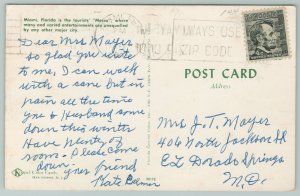 Miami, Florida is the tourists' "Mecca", where
many and varied entertainments are unequalled
by any other major city
ALWAYS USE
ZIP CODE
Dear Mrs Mayer
so glad you wrote
to me, I can walk
with a cane but in
pain all the time
you & Husband some
down this winter
Have plenty of
room. Please Come
down your friend
Kate
POST CARD
Address
Mrs J. T. Mayer
406 North Jackson St
El Dorado Springs
M.O.
Color Cards